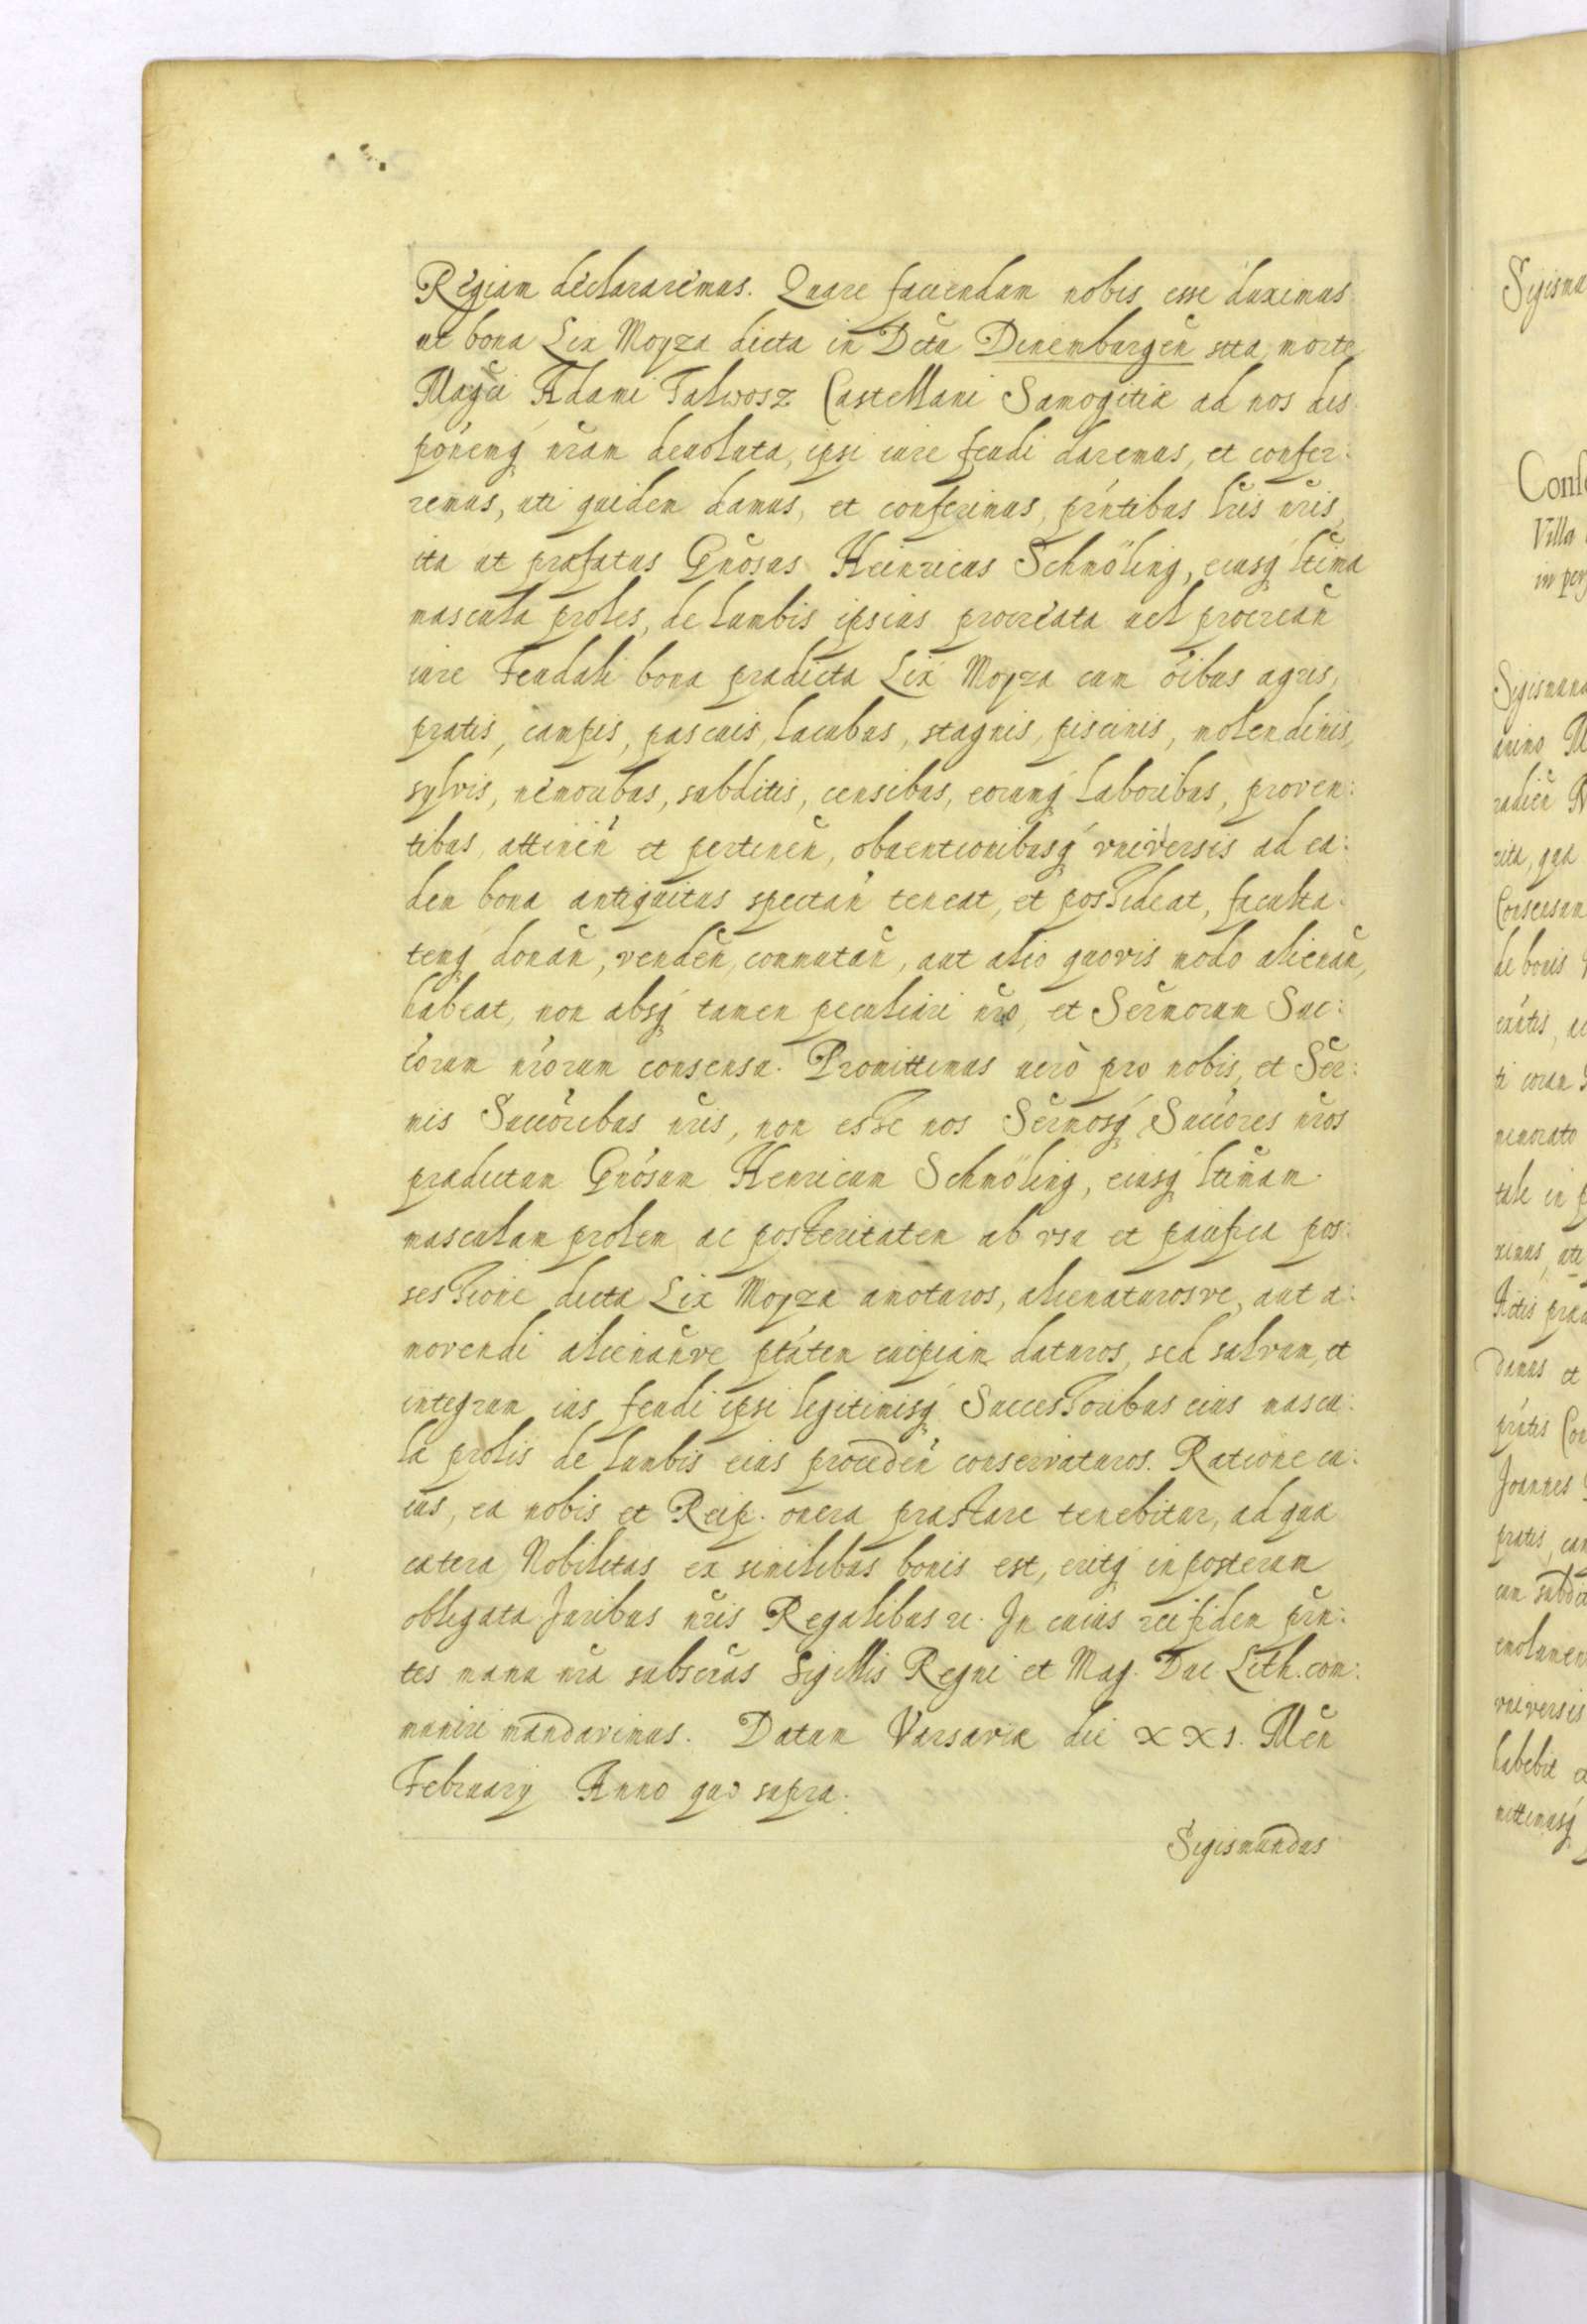 Regiam declararemus. Quare faciendum nobis esse duximus
ut bona Lix Moyza dicta in Dctu Dinemburgen̄ sita, morte
Magci Adami Talwosz Castellani Samogitiæ ad nos dis
pōnemq́ nr̄am deuoluta, ipsi iure feudi daremus, et confer:
remus, uti quidem damus, et conferimus, prn̄tibus lr̄is nr̄is,
ita ut præfatus Gn̄osus Heinricus Schmöling, eiusq́ ltima
mascula proles, de lumbis ipsius procreata uel procrean̄
iure Feudali bona prædicta Lix Moyza cum ōibus agris,
pratis, campis, pascuis, lacubus, stagnis, piscinis, molendinis,
sylvis, nemoribus, subditis, censibus, eorumq́ laboribus, proven:
tibus, attinen̄ et pertinen̄, obuentionibusq́ vniversis ad ea:
dem bona antiquitus spectan̄ teneat, et possideat, faculta:
temq́ donan̄, venden̄, commutan̄, aut alio quovis modo alienan̄,
habeat, non absq́ tamen peculiari nr̄o, et Sermorum Suc:
c̄orum nr̄orum consensu. Promittimus uerò pro nobis, et Ser:
mis Succ̄oribus nr̄is, non esse nos Sermosq́ Succ̄ores nr̄os
prædictum Gn̄osum Henricum Schmöling, eiusq́ ltimam
masculam prolem ac posteritatem ab vsu et pacifica pos:
sessione dictæ Lix Moyza amoturos, alienaturosve, aut a:
movendi alienan̄ve ptātem cuipiam daturos, sed salvum, et
integrum ius feudi ipsi legitimisq́ Successoribus eius mascu:
læ prolis de lumbis eius proceden̄ conservaturos. Ratione cu:
ius, ea nobis et Reip. onera præstare tenebitur, ad quæ
cætera Nobilitas ex similibus bonis est, eritq́ inposterum
obligata Juribus nr̄is Regalibus &c. In cuius rei fidem prn̄:
tes manu nr̄a subscr̄as Sigillis Regni et Mag. Duc. Lith. com:
muniri mandavimus. Datum Varsaviæ die XXI. Men̄
Februarij Anno quo supra.
Sigismundus
Sigisma
Conf
Villa
in per